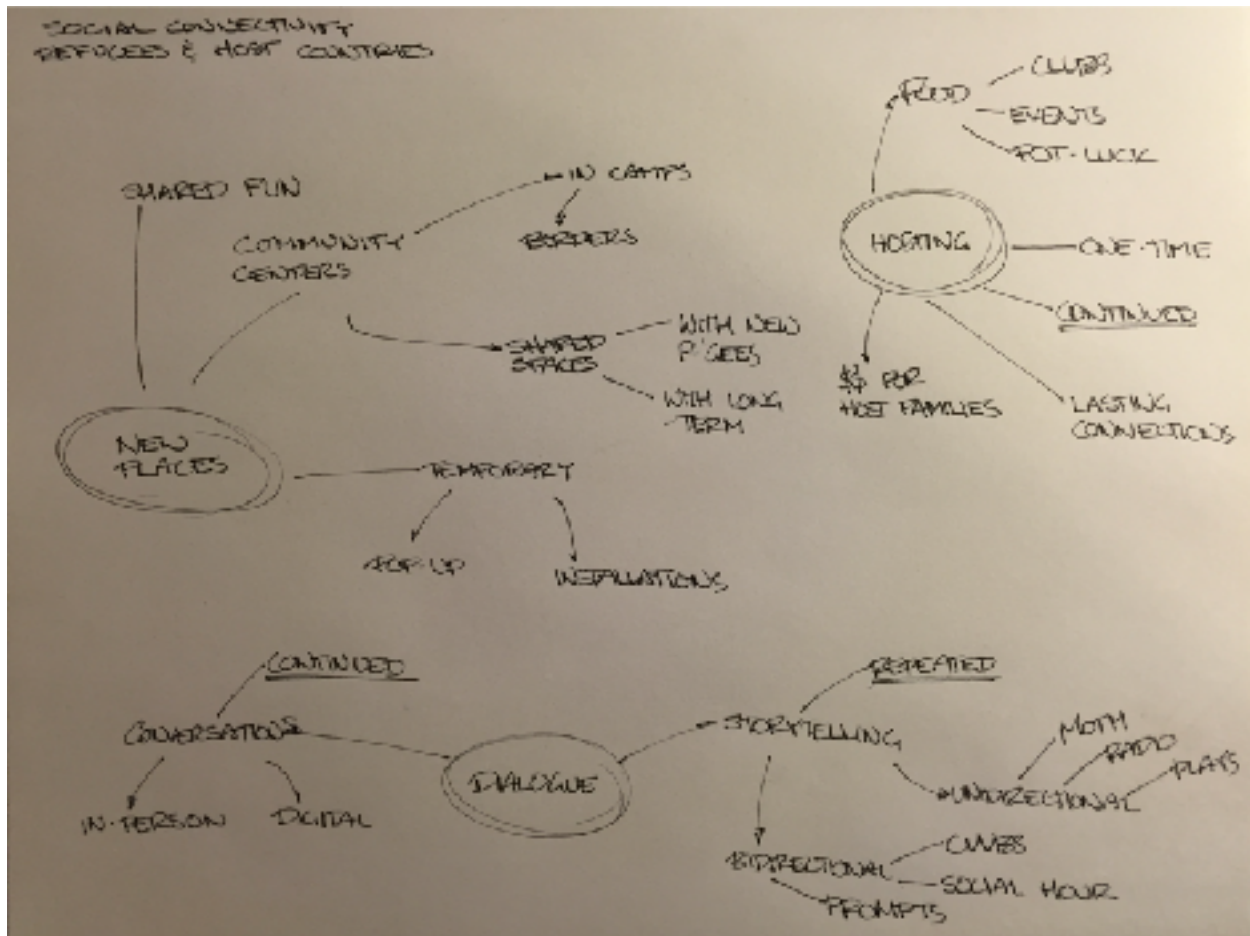 SOCIAL CONNECTIVITY
REFUGEES & HOST COUNTRIES
SHARED FUN
COMMUNITY
CENTERS
IN CAMPS
BORDERS
SHARED
SPACES
WITH NEW
R'GEES
WITH LONG
TERM
NEW
PLACES
TEMPORARY
POP-UP
INSTALLATIONS
FOOD
CLUBS
EVENTS
POT-LUCK
HOSTING
ONE-TIME
CONTINUED
$$ FOR
HOST FAMILIES
LASTING
CONNECTIONS
CONTINUED
CONVERSATIONS
IN-PERSON
DIGITAL
DIALOGUE
REPEATED
STORYTELLING
MOTH
RADIO
PLAYS
UNIDIRECTIONAL
BIDIRECTIONAL
CLUBS
SOCIAL HOUR
PROMPTS